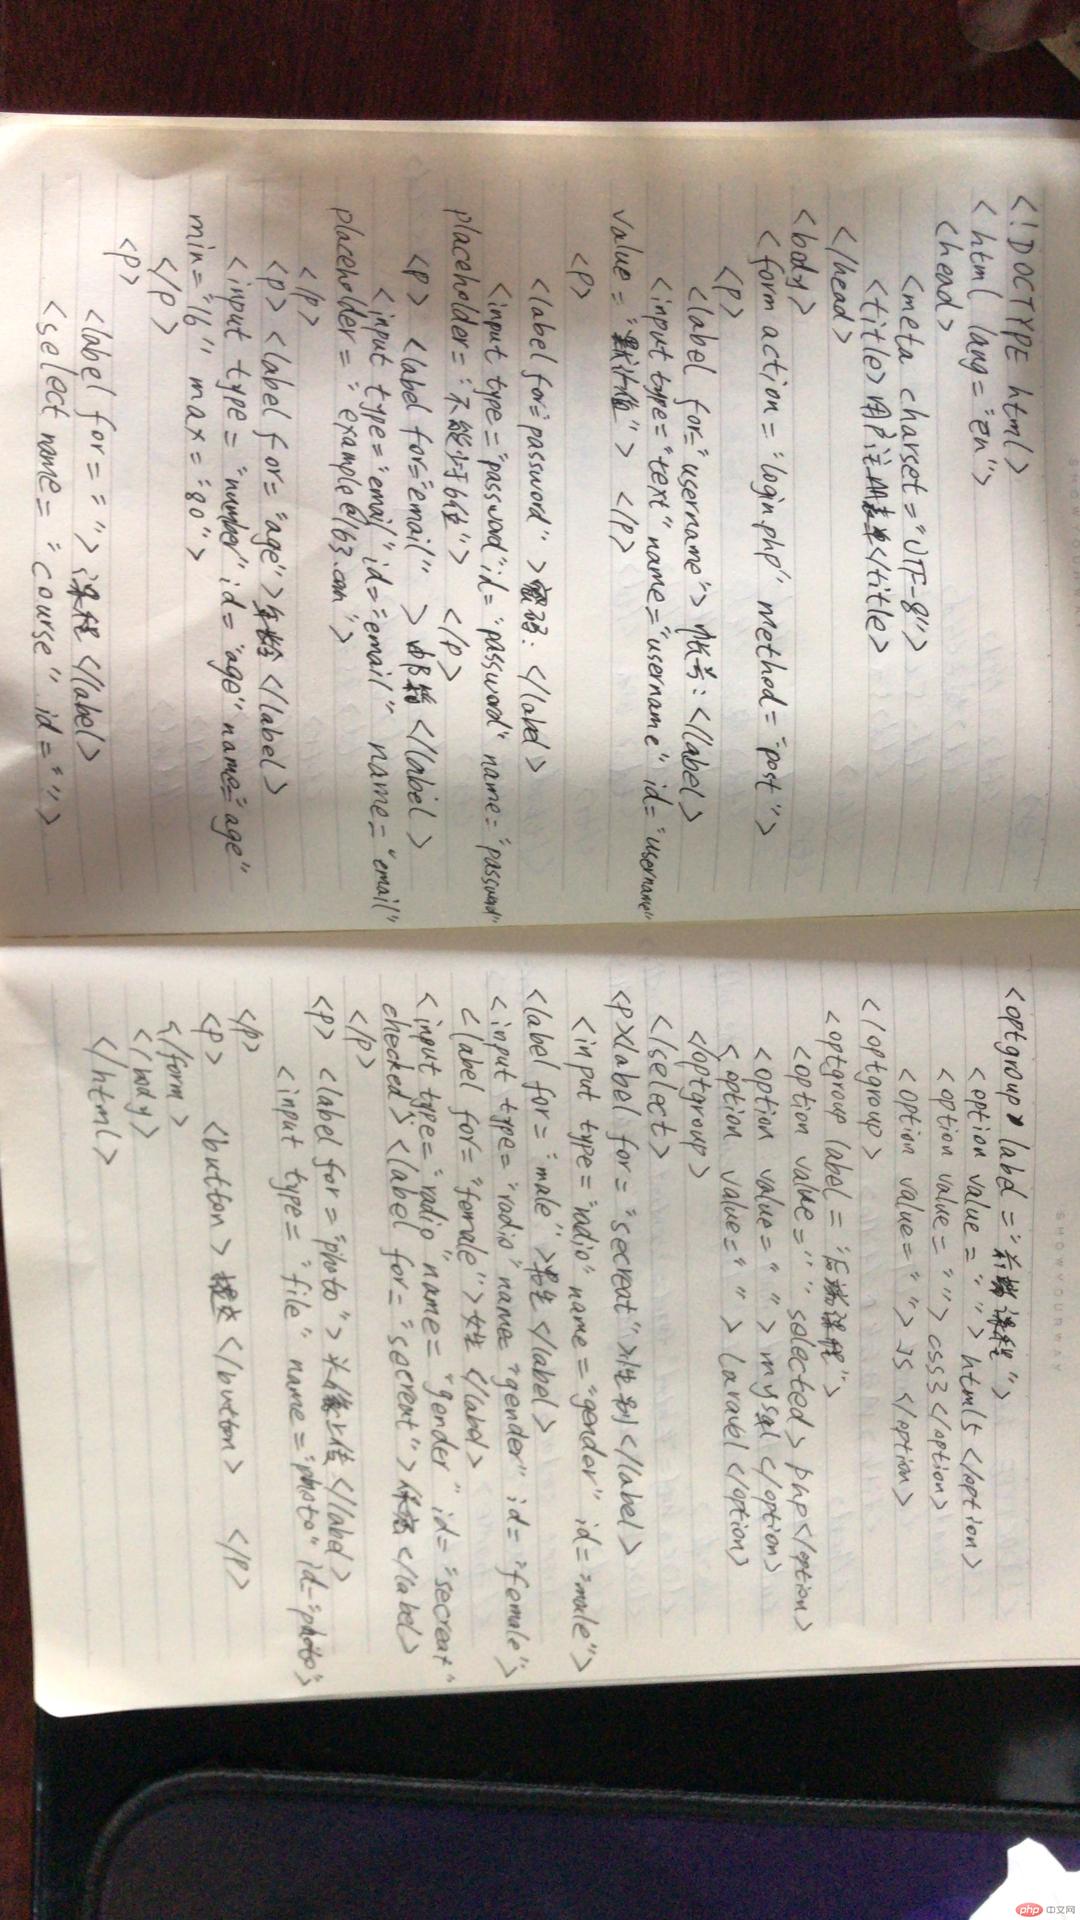 <!DOCTYPE html>
<html lang="en">
<head>
<meta charset="UTF-8">
<title>用户注册表单</title>
</head>
<body>
<form action="login.php" method="post">
<p>
<label for="username">帐号:</label>
<input type="text" name="username" id="username"
value="默认值"> </p>
<p>
<label for="password">密码:</label>
<input type="password" id="password" name="password"
placeholder="不能少于6位"> </p>
<p> <label for="email">邮箱</label>
<input type="email" id="email" name="email"
placeholder="example@163.com">
</p>
<p> <label for="age">年龄</label>
<input type="number" id="age" name="age"
min="16" max="80">
</p>
<p>
<label for="">课程</label>
<select name="course" id="">
<optgroup label="前端课程">
<option value="">html5</option>
<option value="">css3</option>
<option value="">JS</option>
</optgroup>
<optgroup label="后端课程">
<option value="" selected>php</option>
<option value="">mysql</option>
<option value="">laravel</option>
</optgroup>
</select>
<p><label for="secreat">性别</label>
<input type="radio" name="gender" id="male">
<label for="male">男生</label>
<input type="radio" name="gender" id="female">
<label for="female">女生</label>
<input type="radio" name="gender" id="secreat"
checked><label for="secreat">保密</label>
</p>
<p> <label for="photo">头像上传</label>
<input type="file" name="photo" id="photo">
</p>
<p> <button>提交</button> </p>
</form>
</body>
</html>
SHOWYOURWAY
SHOWYOURWAY
php 中文网